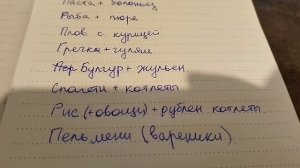 Паста + болоньез
Рыба + пюре
Плов с курицей
Гречка + гуляш
Булгур + жульен
Спагети + котлеты
Рис (+овощи) + рублен котлеты
Пельмени (вареники)